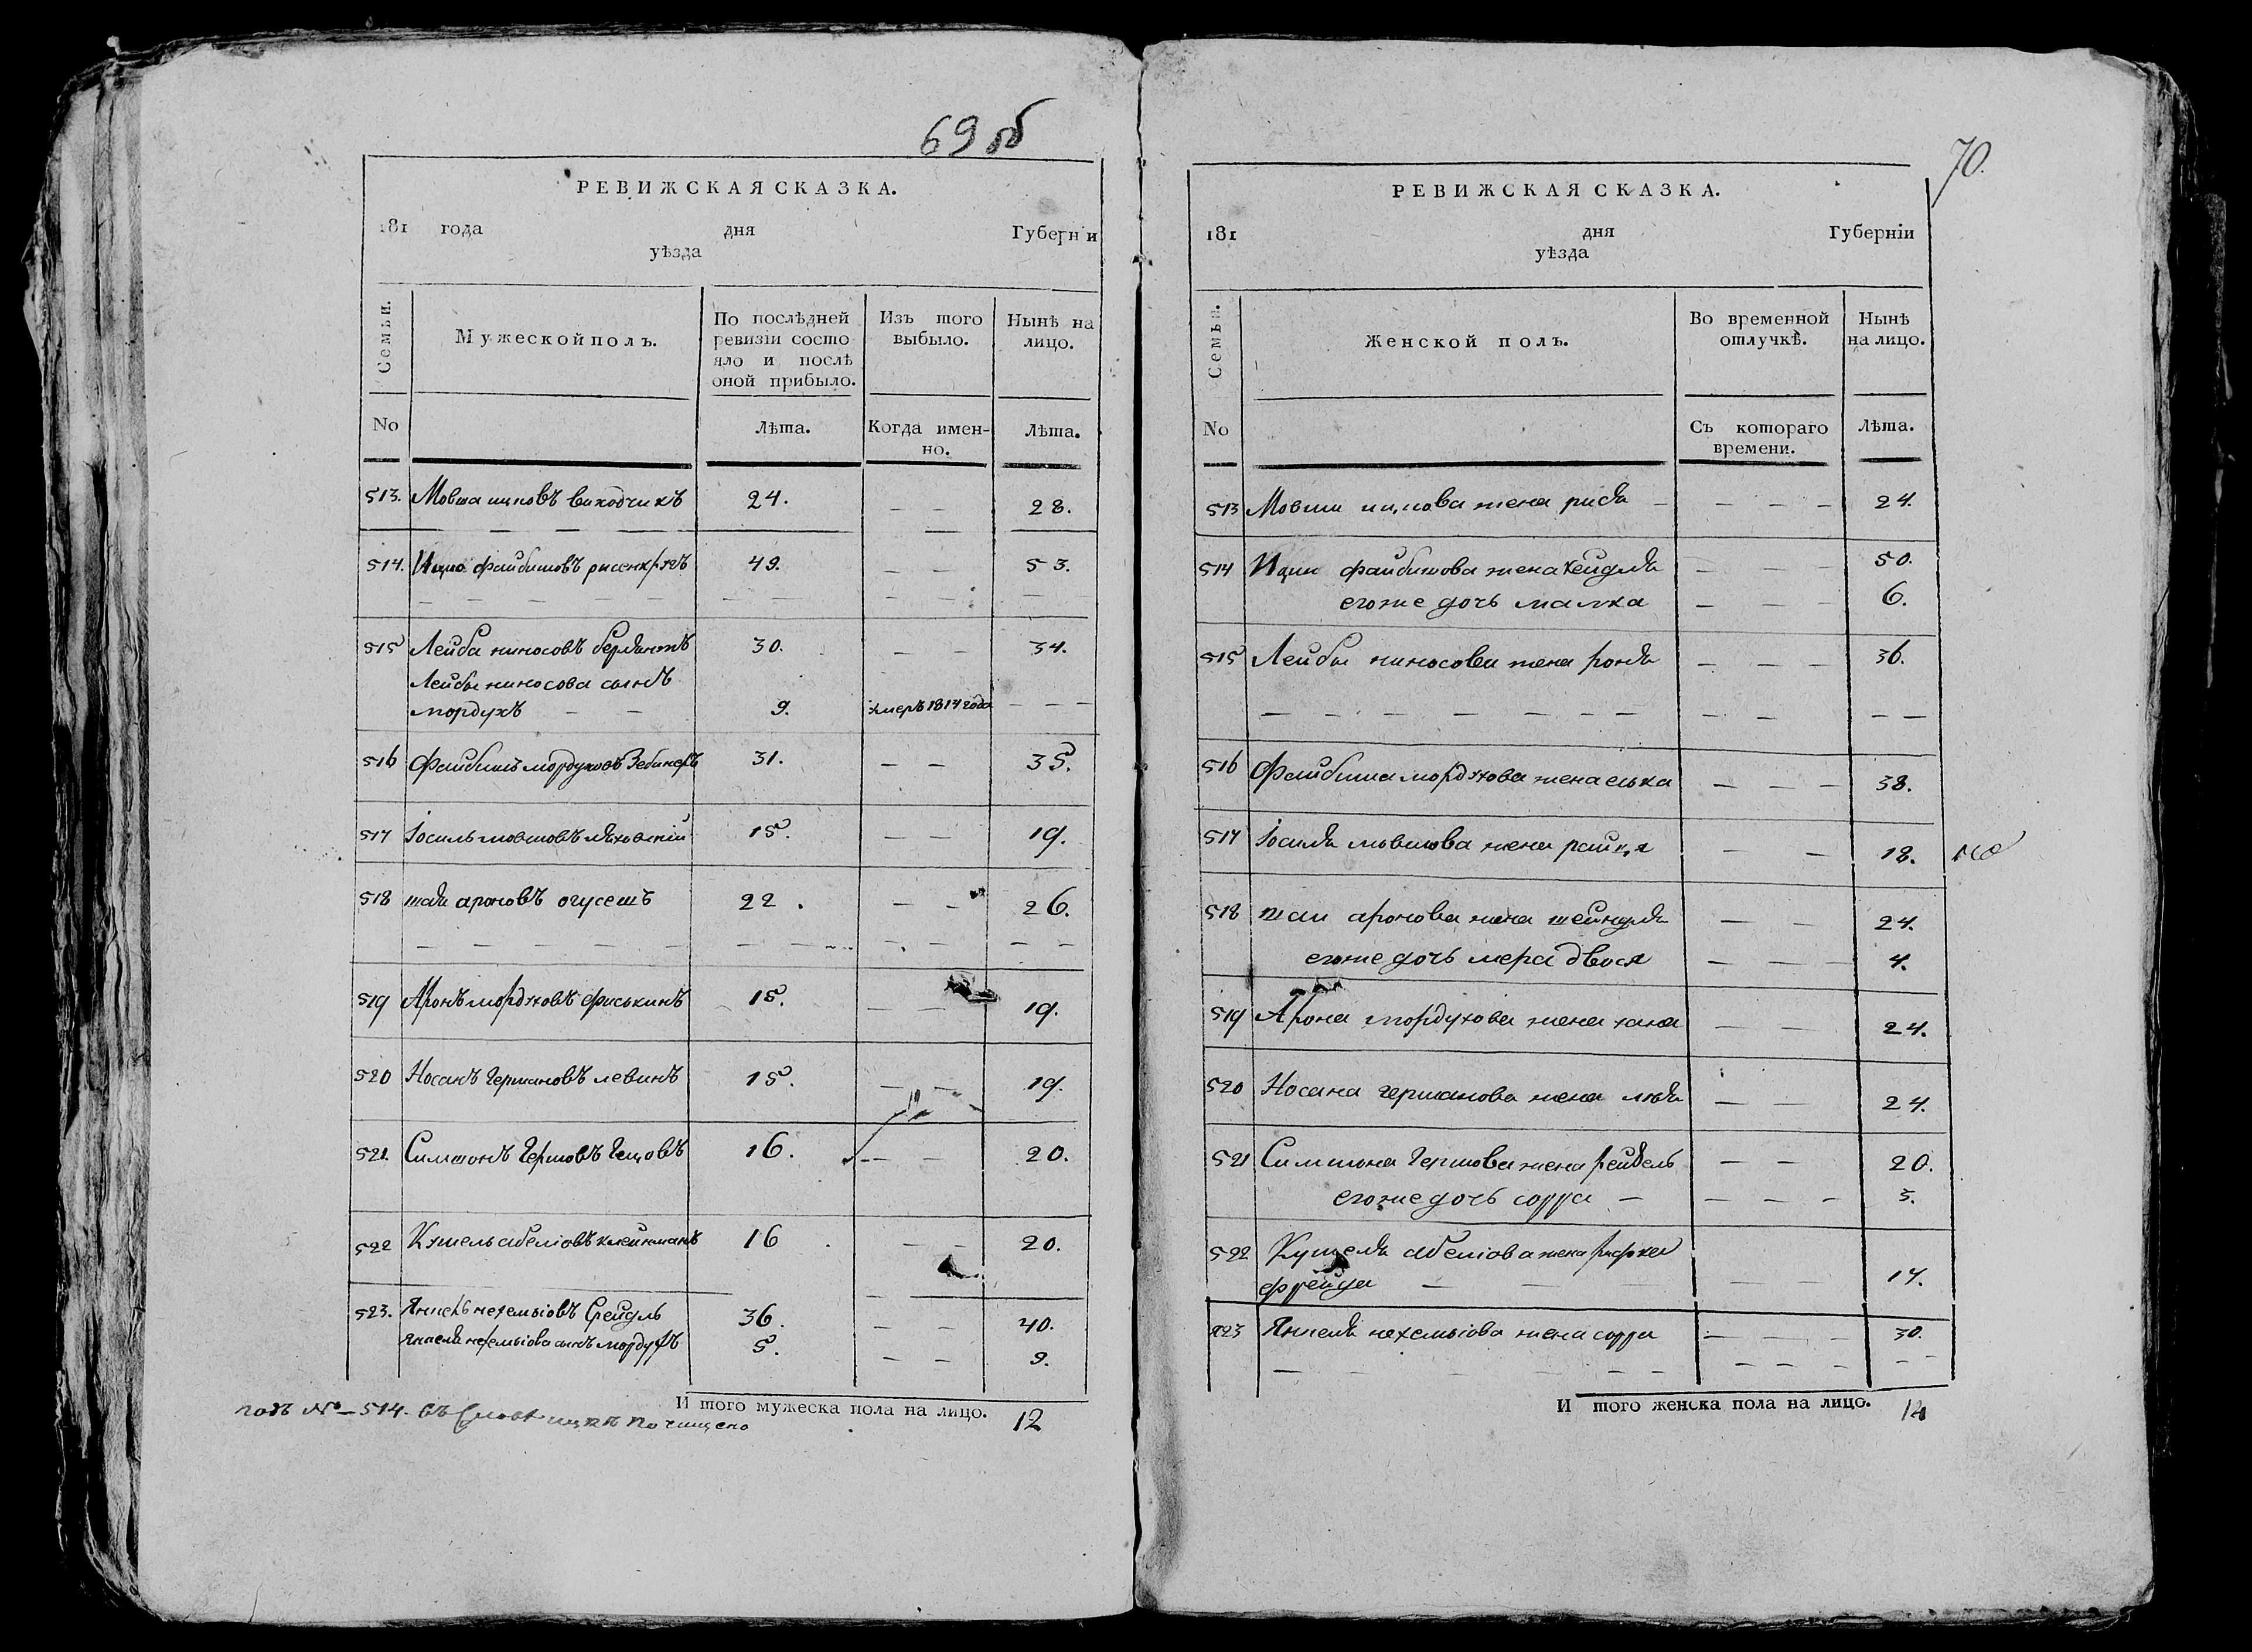 69 об
РЕВИЖСКАЯ СКАЗКА.
181 года дня Губерніи
уѣзда
Семьи. Мужеской полъ. По послѣдней ревизіи состояло и послѣ оной прибыло. Изъ того выбыло. Нынѣ на лицо.
No Лѣта. Когда именно. Лѣта.
513. Мовша ицковъ виходчикъ 24. — — 28.
514. Ицко файбишовъ 49. — — 53.
515 Лейба пинхосовъ 30. — — 34.
Лейбы сынъ
мордухъ — — 9. умеръ 1814 года — — —
516 Файбишъ мордуховъ 31. — — 35.
517 Іосиль мовшовъ ляховскій 15. — — 19.
518 шая ароновъ 22. — — 26.
519 Аронъ мордуховъ фиськинъ 15. — — 19.
520 Носанъ германовъ левинъ 15. — — 19.
521. Симшонъ гершовъ 16. — — 20.
522 Кушель абеліовъ клейнманъ 16 — — 20.
523. Янкель нехемьіовъ 36. — — 40.
Янкеля нехемьіова сынъ мордухъ 5. — — 9.
И того мужеска пола на лицо. 12
подъ № 514. въ почищено
70.
РЕВИЖСКАЯ СКАЗКА.
181 дня Губерніи
уѣзда
Семьи. Женской полъ. Во временной отлучкѣ. Нынѣ на лицо.
No Съ котораго времени. Лѣта.
513 Мовши ицкова жена — — — 24.
514 Ицки файбишова жена — — — 50.
его же дочь малка — — — 6.
515 Лейбы жена роня — — — 36.
516 Файбиша мордухова жена — — — 38.
517 Іосиля мовшова жена райца — — 18.
518 шаи аронова жена шейндля — — 24.
его же дочь мера двося — — — 4.
519 Арона мордухова жена хана — — 24.
520 Носана германова жена — — 24.
521 Симшона гершова жена рейзель — — 20.
его же дочь сорра — — — — 3.
522 Кушеля абеліова жена
фрейда — — — — — 17.
523 Янкеля нехемьіова жена сорра — — — 30.
И того женска пола на лицо.